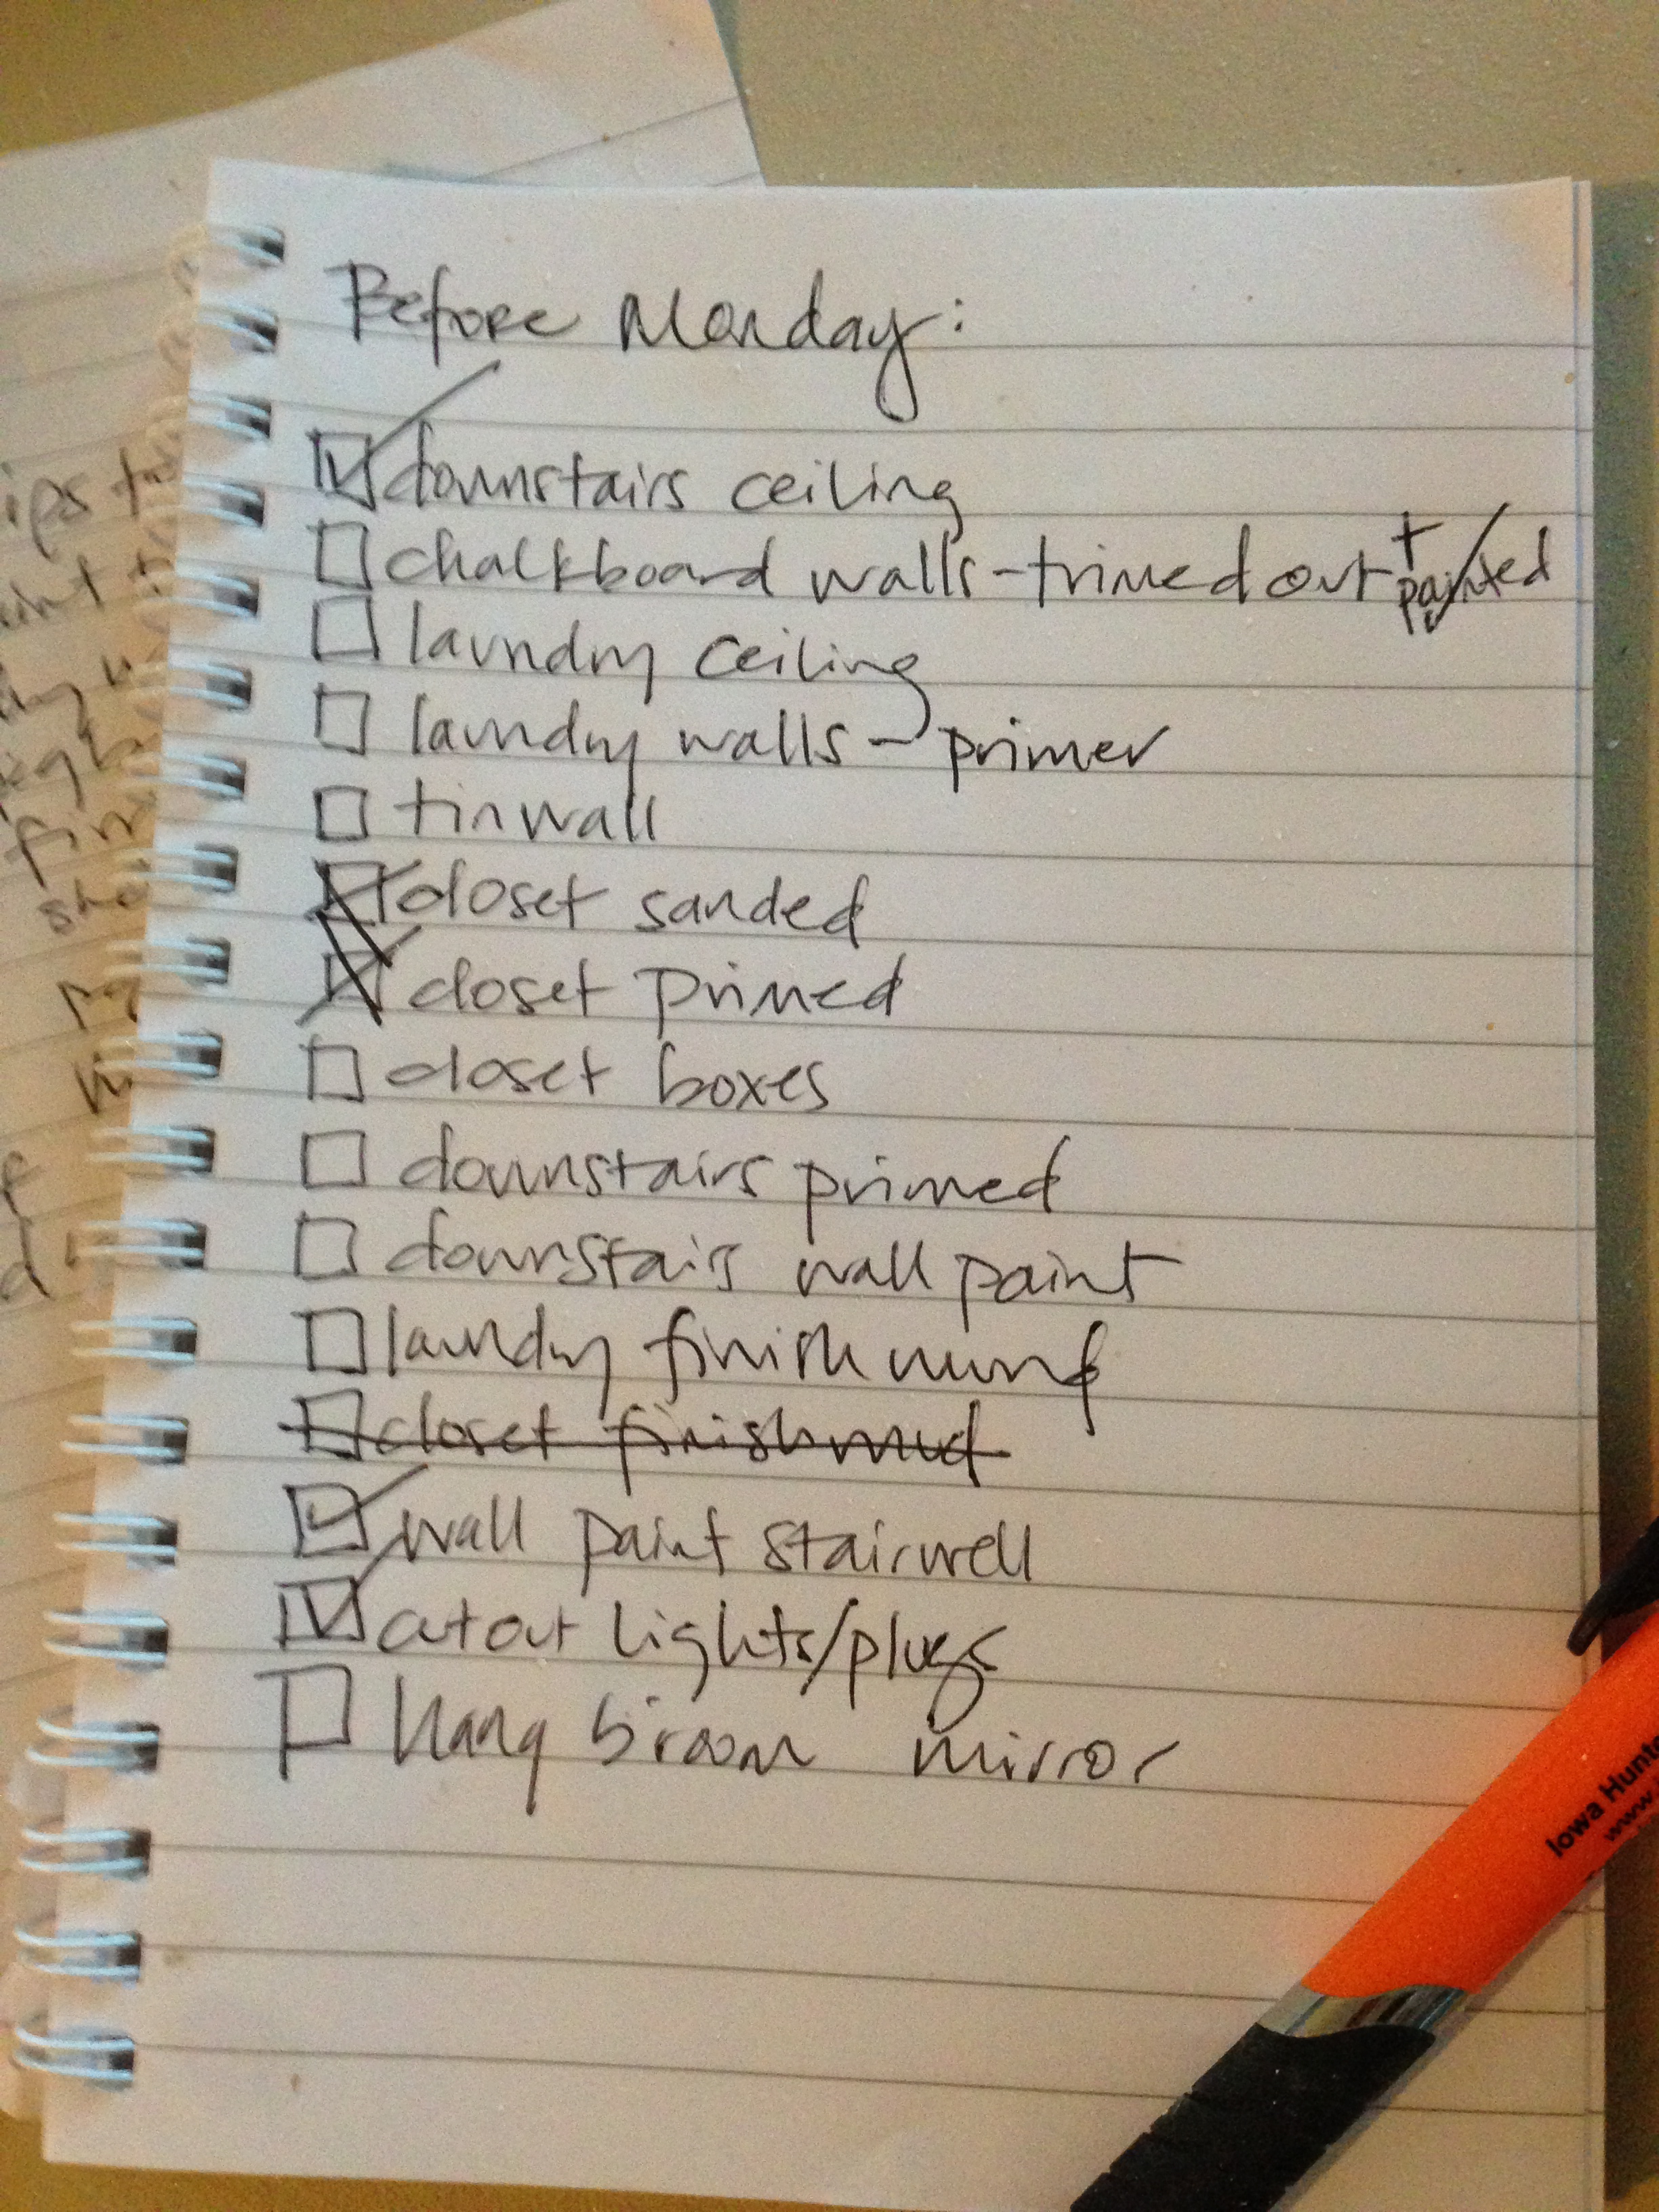 Before Monday:
downstairs ceiling
chalkboard walls - trimed out + painted
laundry ceiling
laundry walls - primer
tin wall
closet sanded
closet primed
closet boxes
downstairs primed
downstairs wall paint
laundry finish mud
closet finish mud
wall paint stairwell
cut out lights/plugs
hang b'room mirror
Iowa
www.
ips